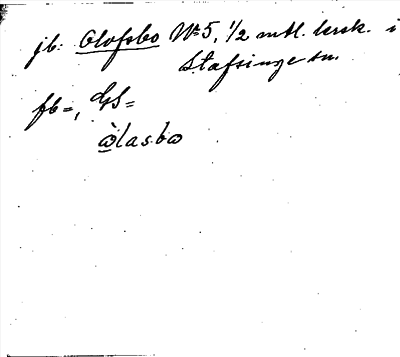 jb: Olofsbo No 5, 1/2 mtl. krsk. i
Stafsinge sn.
fb =, GS =
ɷ̀lasbɷ